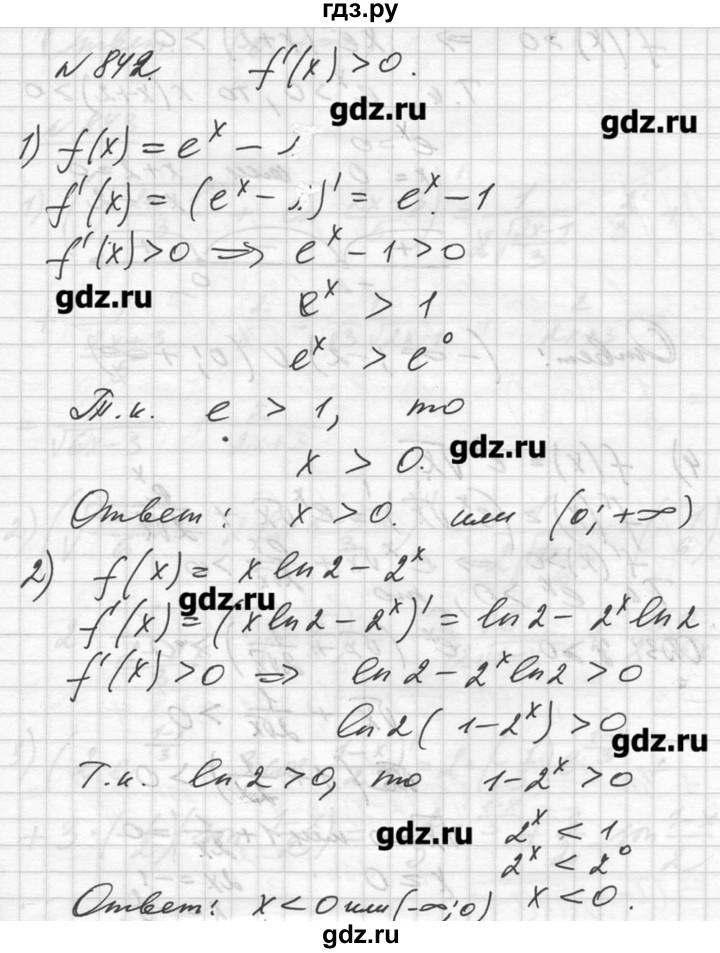 гдз.ру
№ 842. f'(x) > 0.
gdz.ru
gdz.ru
1) f(x) = e^x -
f'(x) = (e^x - )' = e^x - 1
f'(x) > 0 ⇒ e^x - 1 > 0
gdz.ru
e^x > 1
e^x > e^0
Т.к. e > 1, то
gdz.ru
x > 0.
Ответ: x > 0. или (0; +∞)
2) f(x) = x ln 2 - 2^x
gdz.ru
f'(x) = (x ln 2 - 2^x)' = ln 2 - 2^x ln 2
f'(x) > 0 ⇒ ln 2 - 2^x ln 2 > 0
ln 2 (1 - 2^x) > 0
gdz.ru
Т.к. ln 2 > 0, то 1 - 2^x > 0
gdz.ru
2^x < 1
2^x < 2^0
Ответ: x < 0 или (-∞; 0) x < 0.
gdz.ru